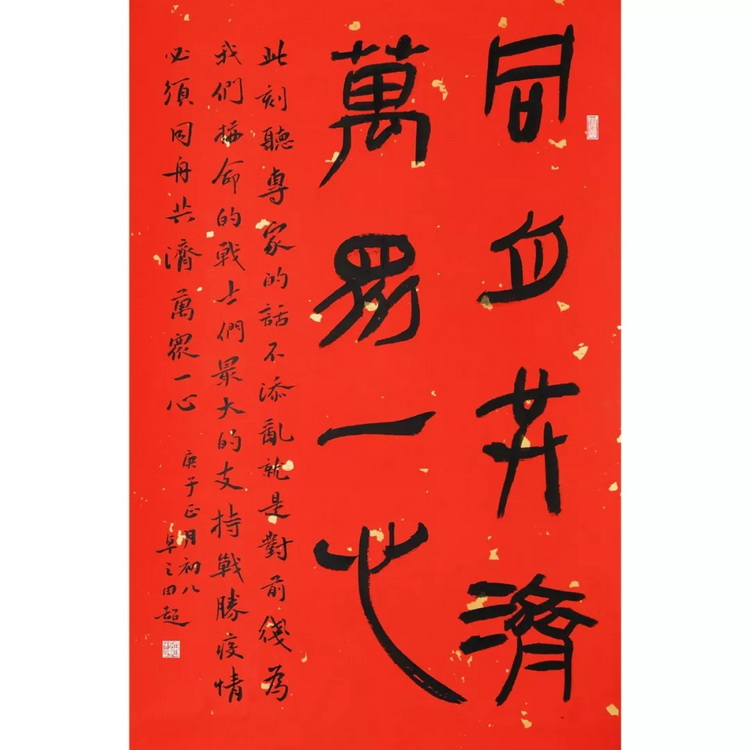 同舟共濟
萬眾一心
此刻聽專家的話不添亂就是對前綫為
我們拚命的戰士們最大的支持戰勝疫情
必須同舟共濟萬眾一心
庚子正月初八
卓之田超